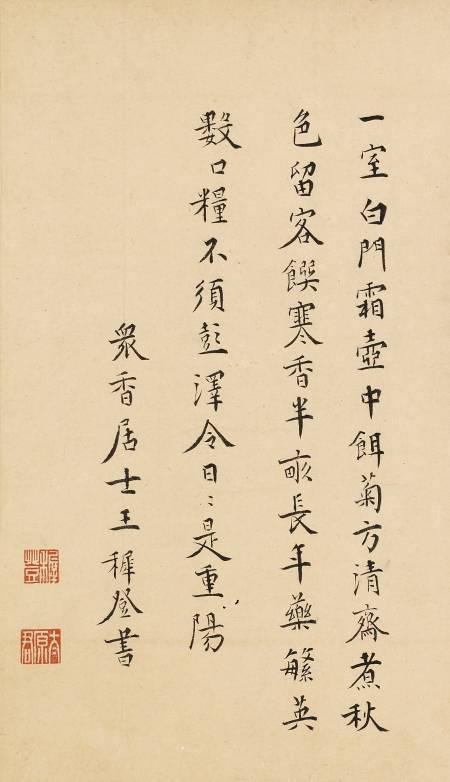 一室白門霜壺中餌菊方清齋煮秋
色留客饌寒香半畝長年藥繁英
數口糧不須彭澤令日〻是重陽
眾香居士王穉登書
穉登